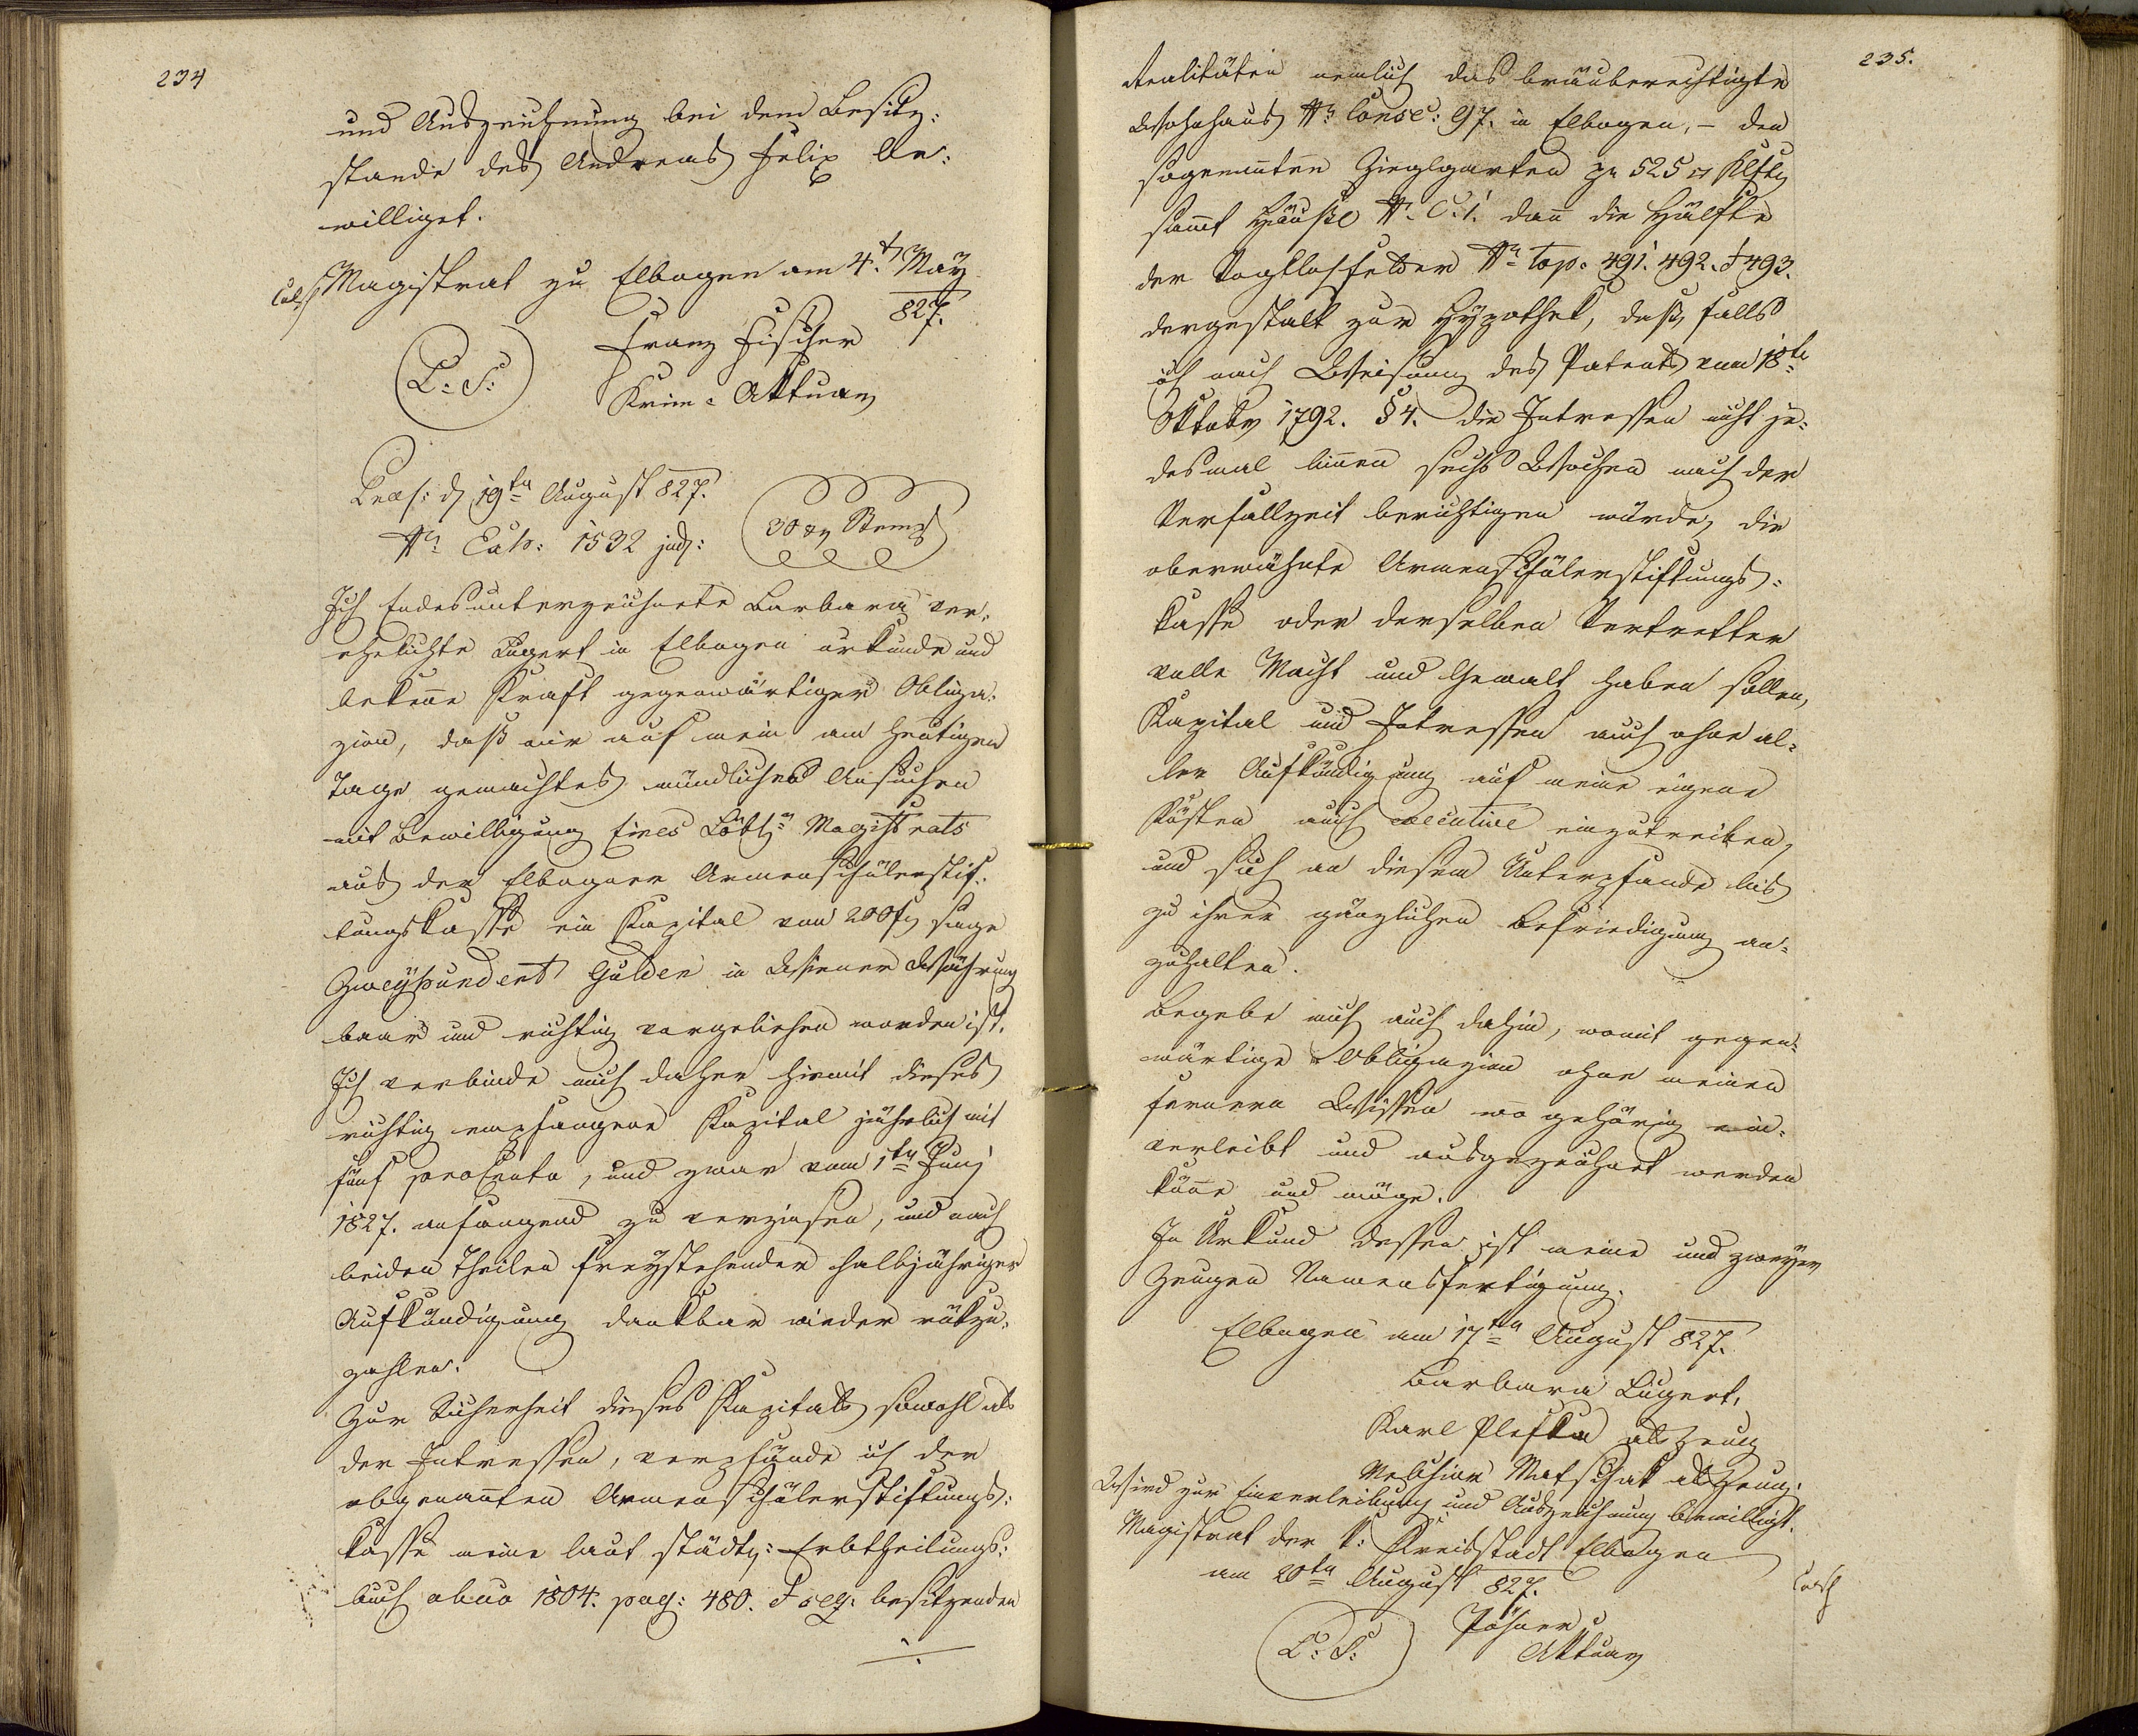 234
und Auszeichnung bei dem Besitz:
stande des Andreas Felix be:
williget.
Magistrat zu Elbogen am 4.t May
827.
Franz Fischer
L: S:
Krim: Aktuar
Praes: d 19ten August 827.
Nr Exh: 1532 jud:
30 xr Stempl
Ich Endesunterzeichnete Barbara ver:
ehelichte Lugert in Elbogen urkunde und
bekenne Kraft gegenwärtiger Obliga:
zion, daß mir auf mein am heutigen
Tage gemachtes mündliches Ansuchen
mit Bewilligung Eines Löbln Magistrats
aus der Elbogner Armenschülerstif:
tungskasse ein Kapital von 200 f sage
Zweyhundert Gulden in Wiener Währung
baar und richtig vorgeliehen worden ist.
Ich verbinde mich daher hiemit dieses
richtig empfangene Kapital jährlich mit
fünf procento, und zwar vom 1ten Juny
1827. anfangend zu verzinsen, und nach
beiden Theilen freystehender halbjähriger
Aufkündigung dankbar wieder rükzu:
zahlen.
Zur Sicherheit dieses Kapitals sowohl als
der Intressen, verpfände ich der
obgenannten Armenschülerstiftungs:
kasse meine laut städt: Erbtheilungs:
buch abuo 1804. pag: 480. & seq: besitzenden
235.
Realitäten nemlich das bräuberechtigte
Wohnhaus Nr Consc: 97. in Elbogen, – den
sogenannten Zieglgarten zu 525 □ Klftr
sammt Häusl Nr C. 1. dann die Hälfte
der Vogtlohfelder Nr top. 491. 492. & 493.
dergestalt zur Hypothek, daß, falls
ich nach Weisung des Patents vom 18te
Oktober 1792. § 4. die Intressen nicht je:
desmal binnen sechs Wochen nach der
Verfallzeit berichtigen würde, die
oberwähnte Armenschülerstiftungs:
kasse oder derselben Vertretter
volle Macht und Gewalt haben sollen,
Kapital und Intressen auch ohne al:
ler Aufkündigung auf meine eigene
Kösten auch executive einzutreiben,
und sich an diesem Unterpfande bis
zu ihrer gänzlichen Befriedigung an:
zuhalten.
Begebe mich auch dahin, womit gegen:
wärtige Obligazion ohne meinen
fernern Wissen wo gehörig ein:
verleibt und ausgezeichnet werden
könne und möge.
In Urkund dessen ist meine und zweyer
Zeugen Namensfertigung.
Elbogen am 17ten August 827.
Barbara Lugert,
Karl Pleschka als Zeug
Melchior Matschak als Zeug.
Wird zur Einverleibung und Auszeichnung bewilligt.
Magistrat der k: Kreisstadt Elbogen
am 20ten August 827.
L: S:
Pöhner
Aktuar